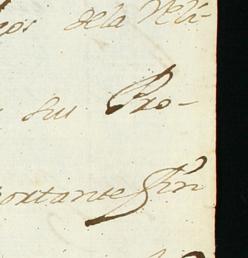 os dela Reli-
su Pro-
ortante Fin